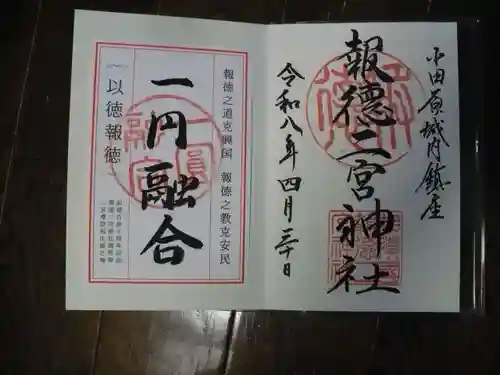 小田原城内鎮座
報徳二宮神社
令和八年四月三十日
報徳之道克興国 報徳之教克安民
一円融合
以徳報徳